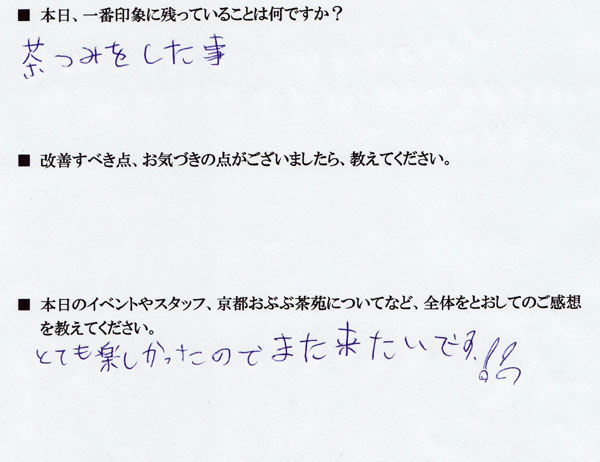 ■ 本日、一番印象に残っていることは何ですか？
茶つみをした事
■ 改善すべき点、お気づきの点がございましたら、教えてください。
■ 本日のイベントやスタッフ、京都おぶぶ茶苑についてなど、全体をとおしてのご感想
を教えてください。
とても楽しかったのでまた来たいです!!